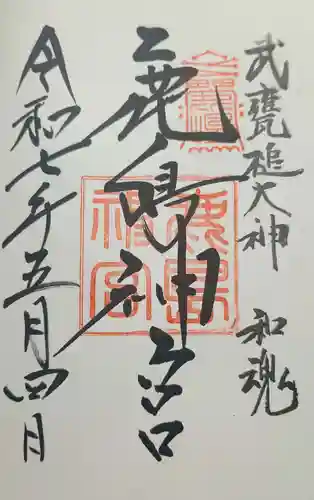 武甕槌大神 和魂
鹿島神宮
鹿島神宮
令和七年五月四日